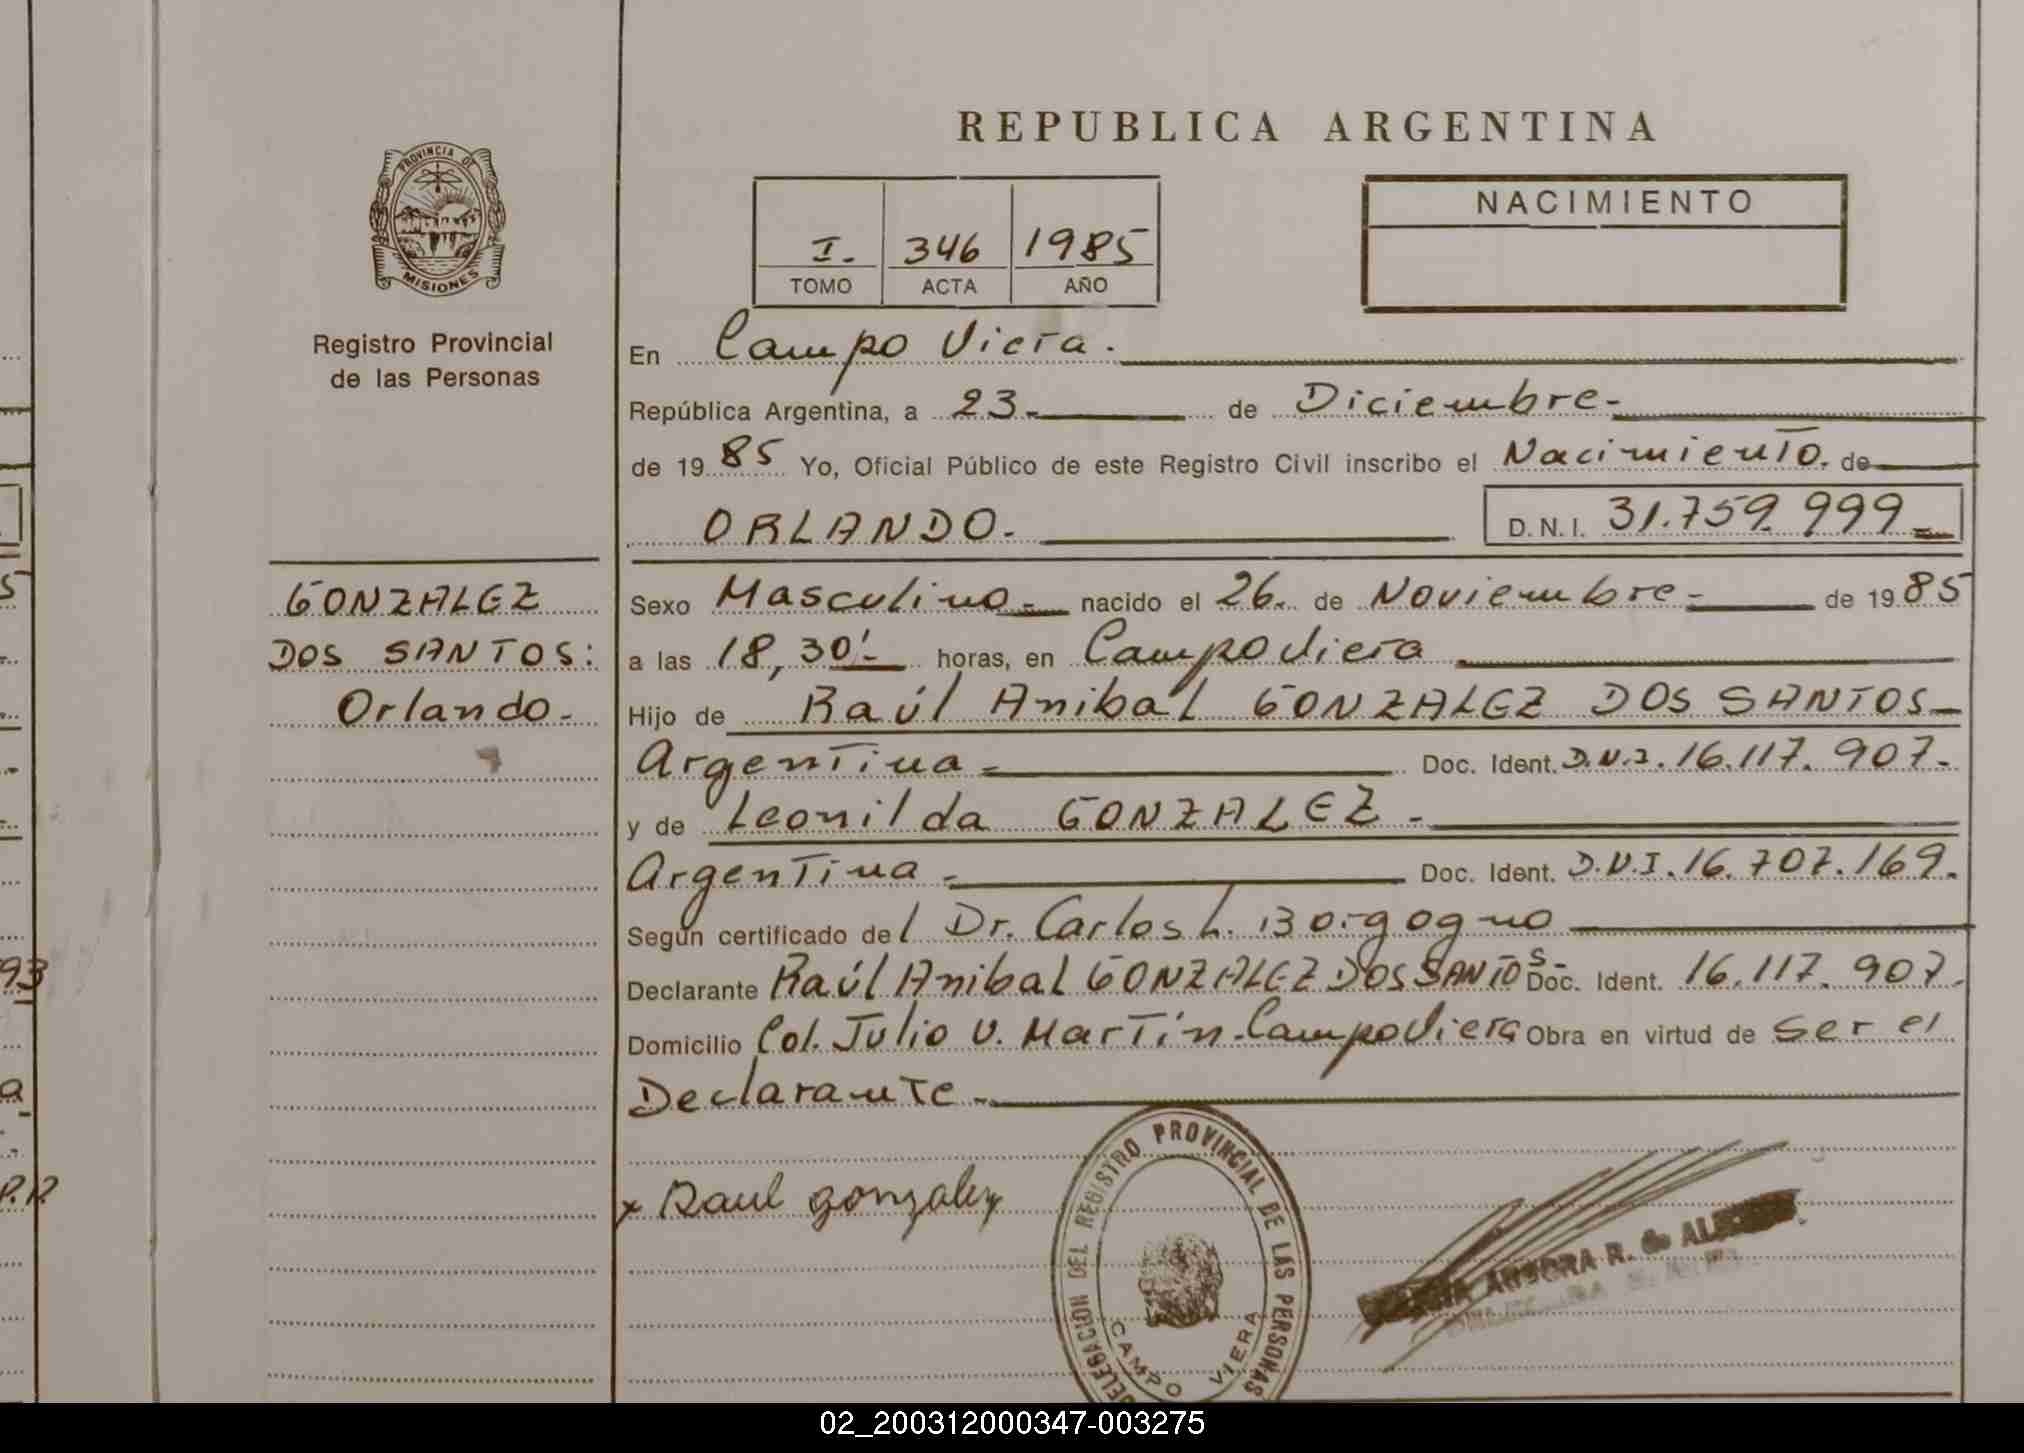 REPUBLICA ARGENTINA
PROVINCIA DE
MISIONES
Registro Provincial
de las Personas
I. 346 1985
TOMO ACTA AÑO
NACIMIENTO
En Campo Viera.
República Argentina, a 23.- de Diciembre-
de 1985 Yo, Oficial Público de este Registro Civil inscribo el Nacimiento. de
ORLANDO.- D.N.I. 31.759.999
GONZALEZ
DOS SANTOS:
Orlando.-
Sexo Masculino- nacido el 26. de Noviembre- de 1985
a las 18,30'- horas, en Campo Viera
Hijo de Raúl Anibal GONZALEZ DOS SANTOS-
Argentina- Doc. Ident. D.N.I. 16.117.907.-
y de Leonilda GONZALEZ-
Argentina- Doc. Ident. D.N.I. 16.707.169.
Según certificado del Dr. Carlos L. Borgogno
Declarante Raúl Anibal GONZALEZ DOS SANTOS- Doc. Ident. 16.117.907.
Domicilio Col. Julio U. Martín-Campo Viera Obra en virtud de ser el
Declarante-
x Raul gonzalez
DELEGACION DEL REGISTRO PROVINCIAL DE LAS PERSONAS
CAMPO VIERA
R. de
93
02_200312000347-003275